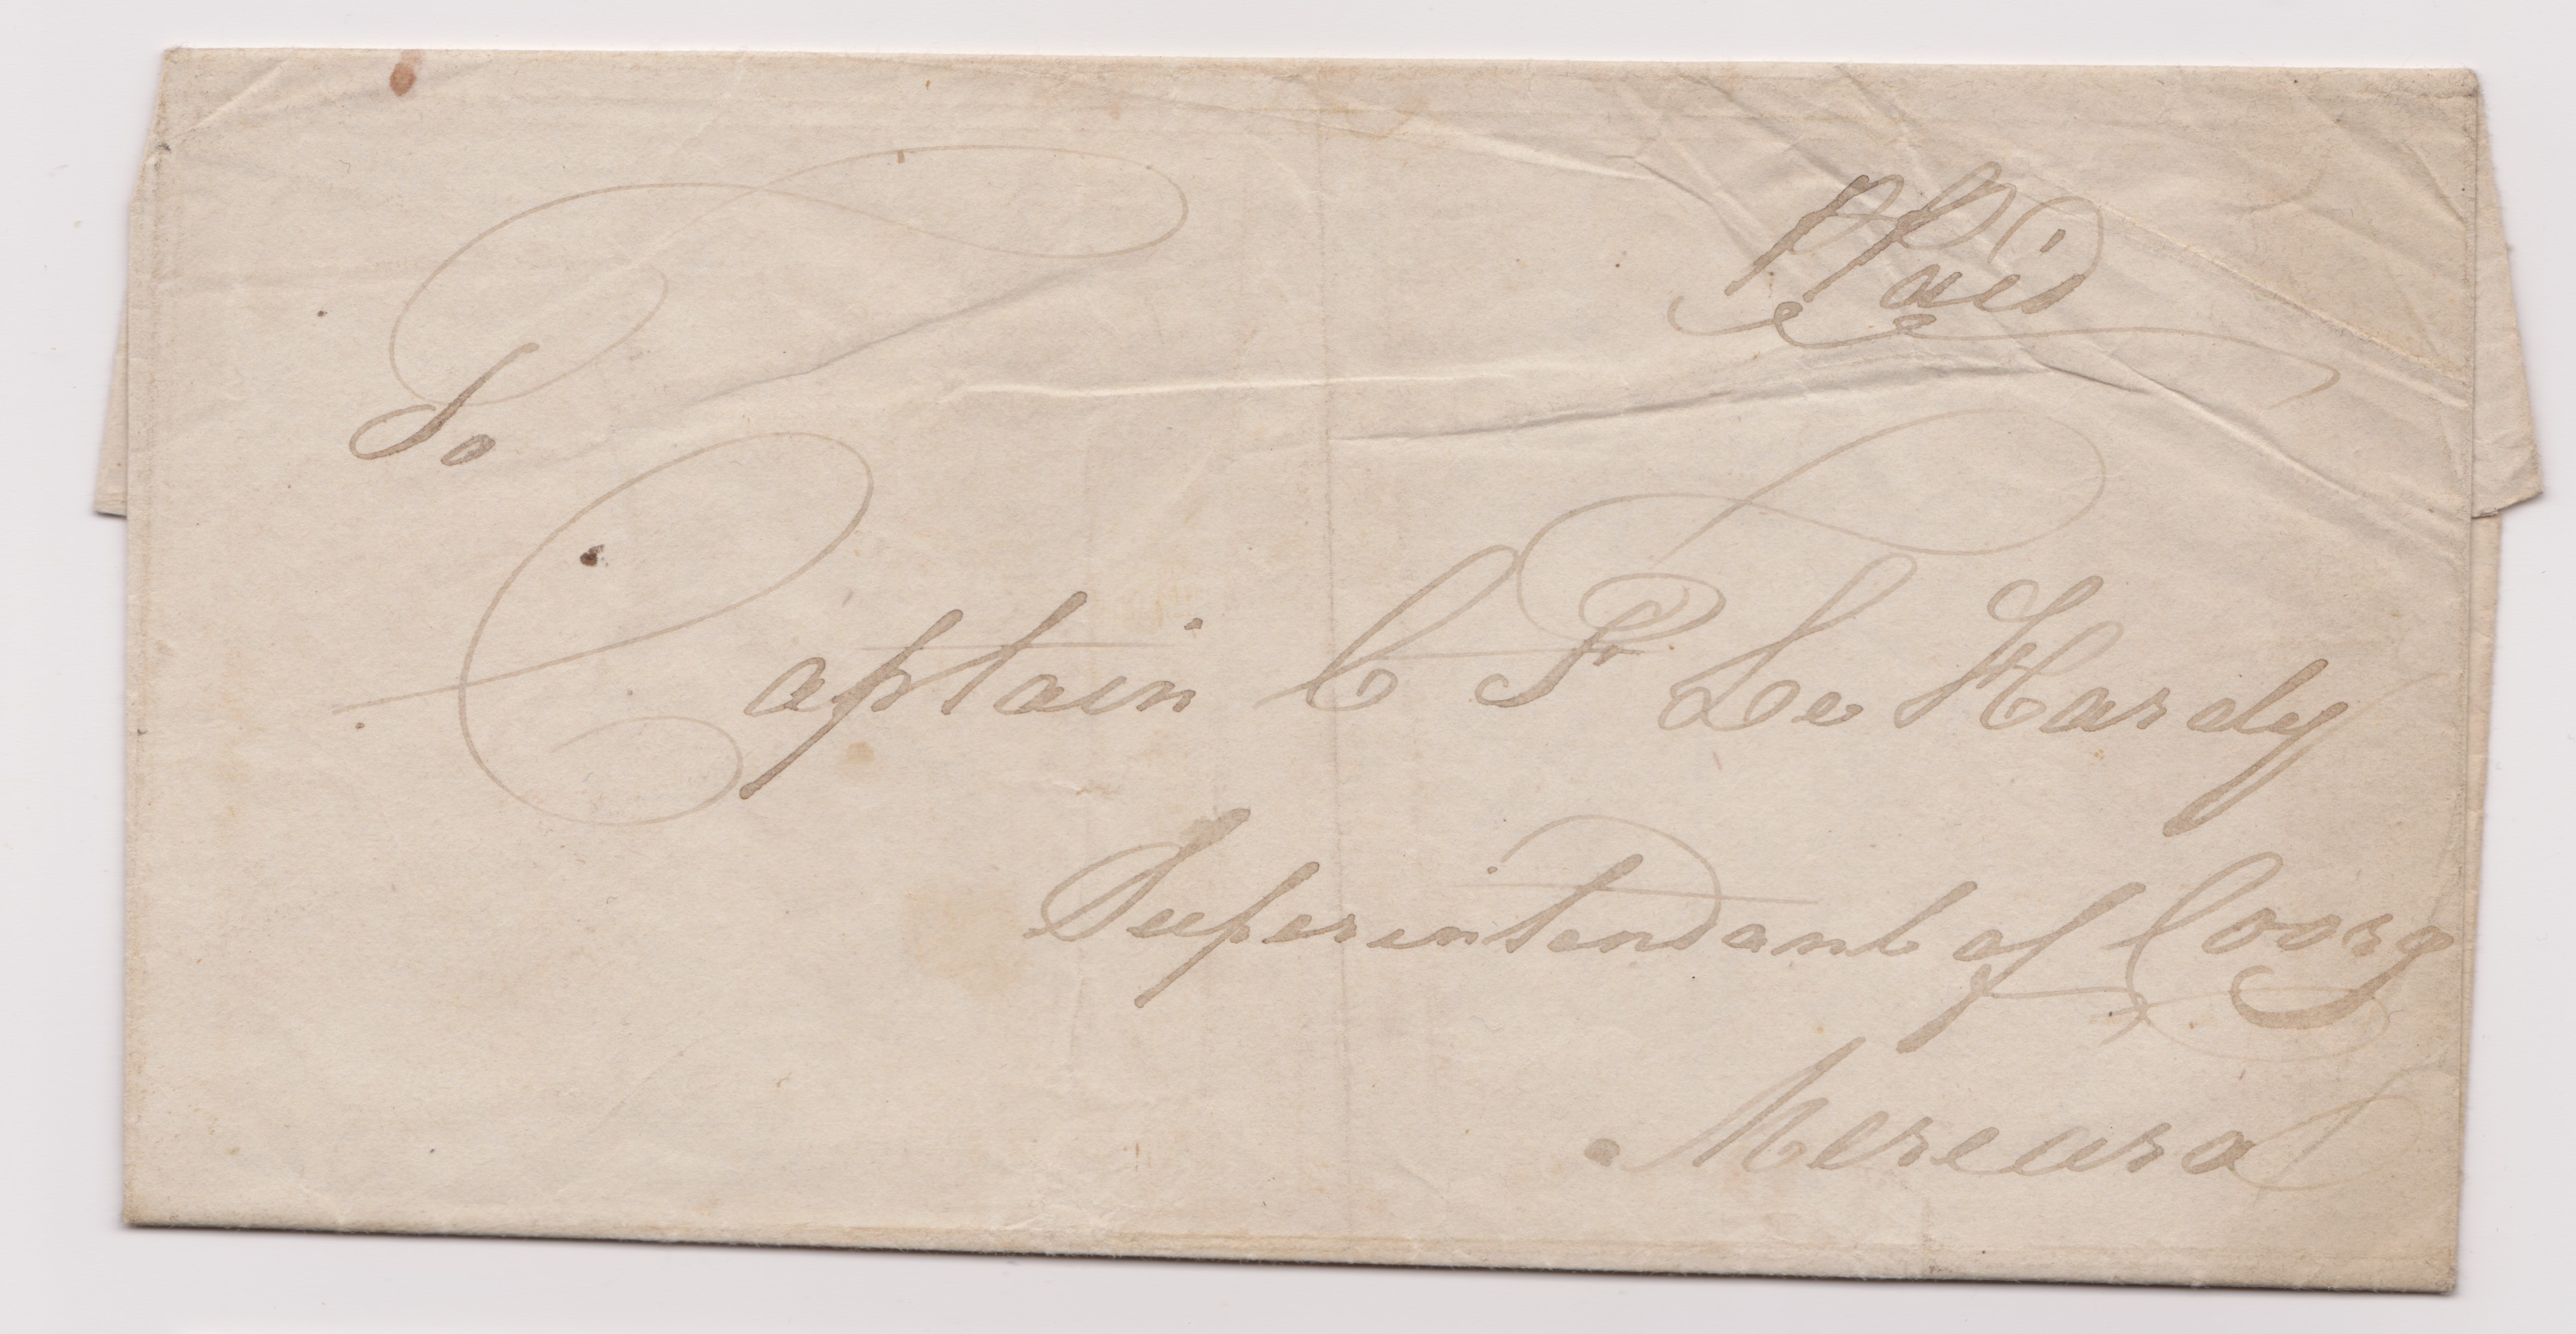 P Paid
To
Captain C F Le Hardy
Superintendant of Coorg
Mercara